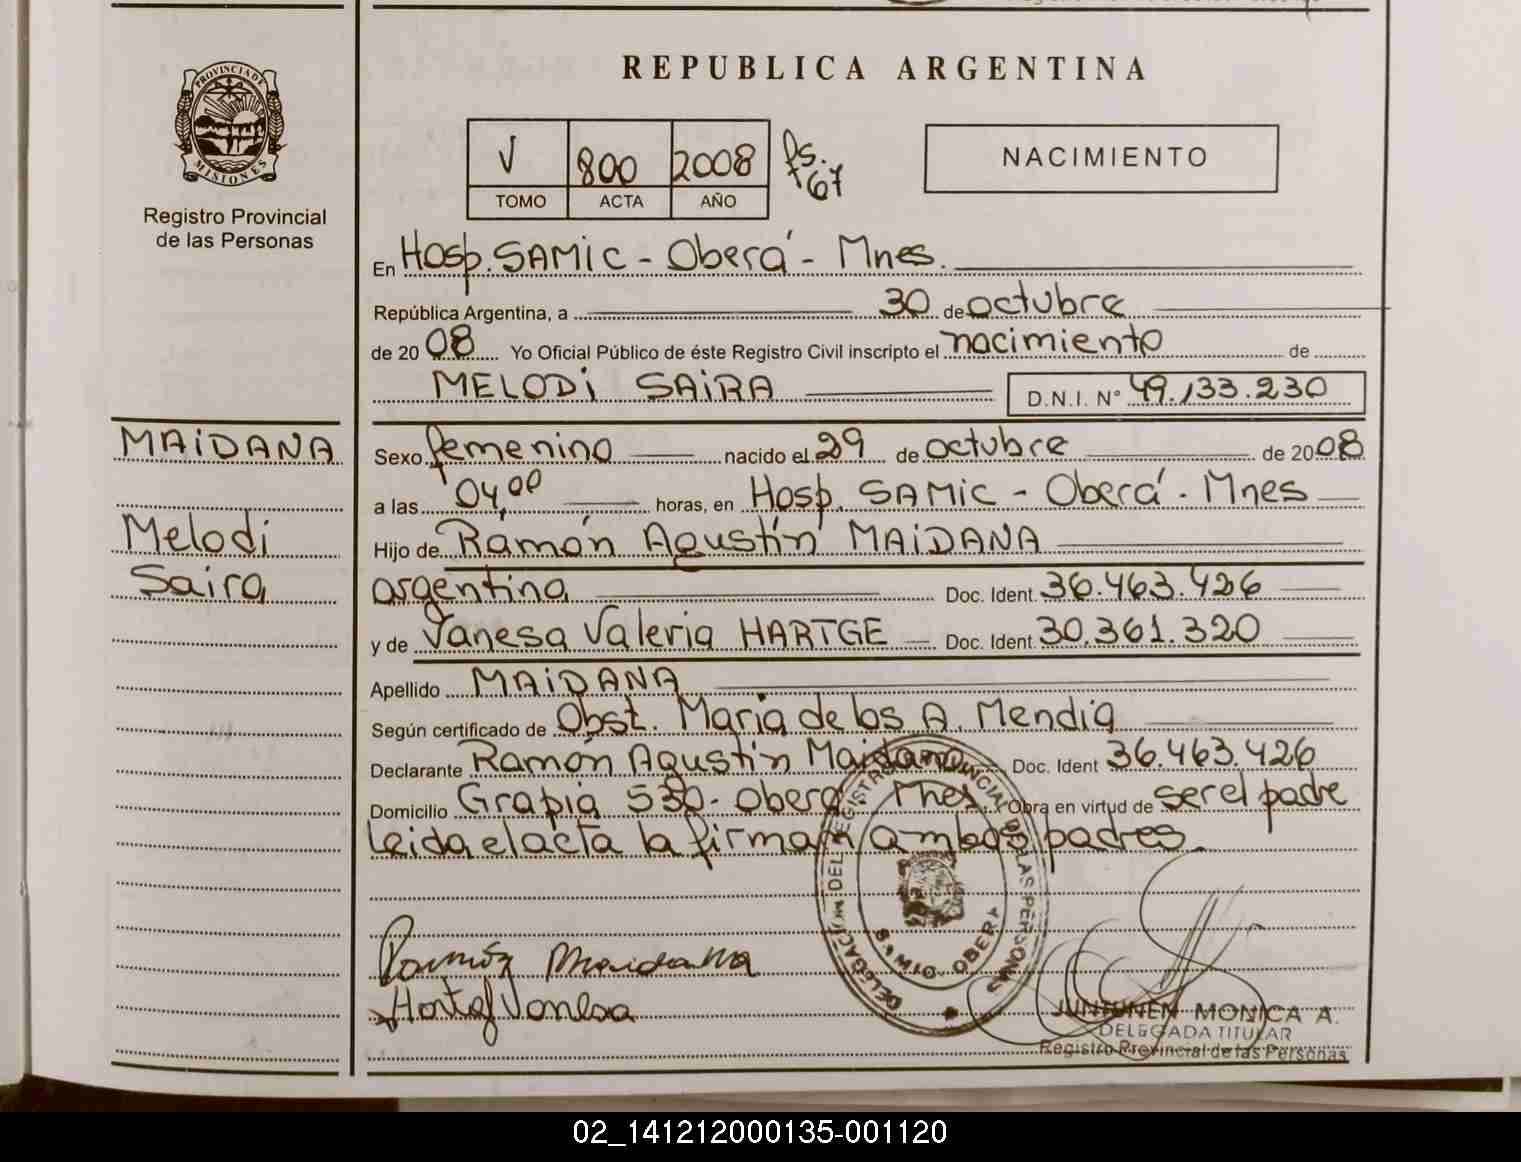 REPUBLICA ARGENTINA
PROVINCIA DE MISIONES
Registro Provincial
de las Personas
V 800 2008 fs. 67
TOMO ACTA AÑO
NACIMIENTO
En Hosp. SAMIC - Oberá - Mnes.
República Argentina, a 30 de octubre
de 2008 Yo Oficial Público de éste Registro Civil inscripto el nacimiento de
MELODI SAIRA D.N.I. N° 49.133.230
MAIDANA
Melodi
Saira
Sexo femenino nacido el 29 de octubre de 2008
a las 04,00 horas, en Hosp. SAMIC - Oberá - Mnes
Hijo de Ramón Agustín MAIDANA
argentina Doc. Ident. 36.463.426
y de Vanesa Valeria HARTGE Doc. Ident. 30.361.320
Apellido MAIDANA
Según certificado de Obst. Maria de los A. Mendia
Declarante Ramón Agustin Maidana Doc. Ident 36.463.426
Domicilio Grapia 530 - Obera - Mnes Obra en virtud de ser el padre
Leida el acta la firman ambos padres.
DELEGACION DEL REGISTRO PROVINCIAL DE LAS PERSONAS
OBERA
Ramón Maidana
Vanesa
JUNTUNEN MONICA A.
DELEGADA TITULAR
Registro Provincial de las Personas
02_141212000135-001120